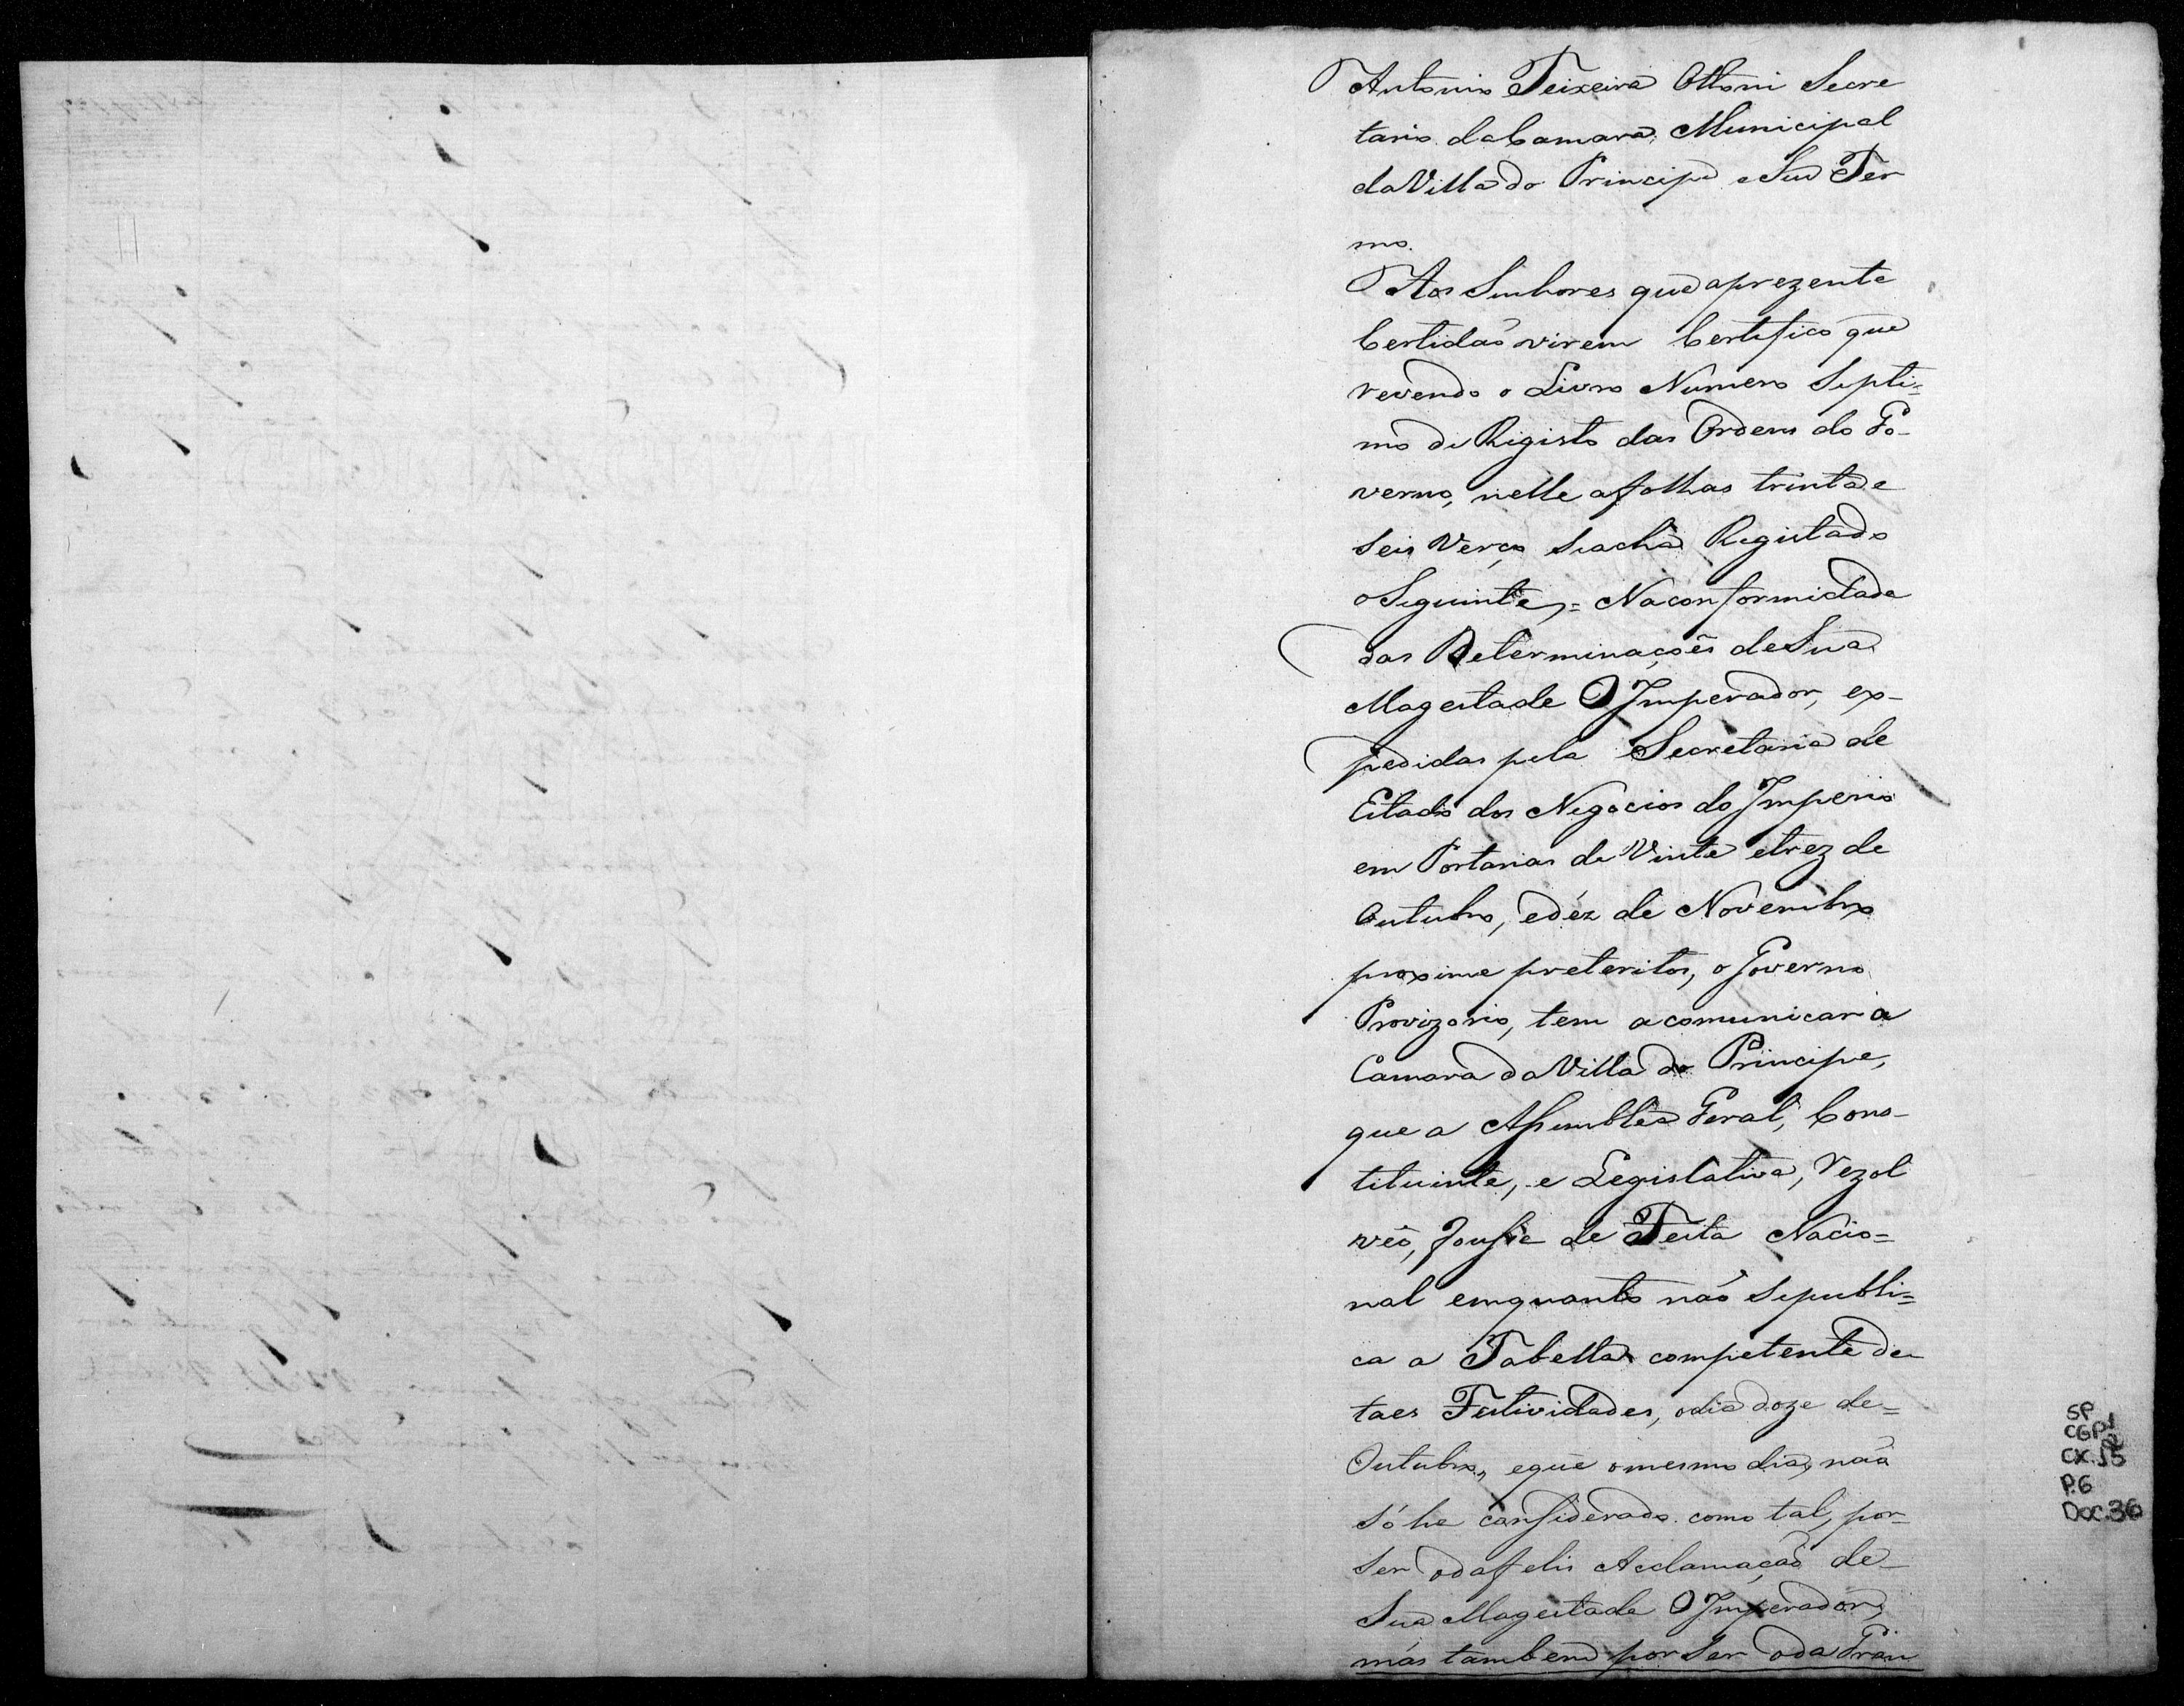 Antonio Teixeira Ottoni Secre
tario da Camara Municipal
da Villa do Principe e Seu Ter
mo.
Aos Senhores que aprezente
Certidaõ virem Certifico que
revendo o Livro Numero Septi=
mo de Rigisto das Ordens do Go-
verno, nelle afolhas trinta e
seis Verço, seacha Registado
oSeguinte,= Naconformidade
das Determinaçoẽs deSua
Magestade O Imperador, ex-
pedidas pela Secretaria de
Estado dos Negocios do Imperio
em Portarias de Vinte etrez de
Outubro, edéz de Novembro
proxime preteritos, o Governo
Provizorio, tem acomunicar a
Camara da Villa do Principe,
que a Assemblea Geral, Cons-
tituinte, e Legislativa, rezol
veo, fousse de Festa Nacio=
nal emquanto naõ sepubli=
ca a Tabella competente de
taes Festividades, odia doze de=
Outubro, eque omesmo dia, naõ
só he considerado como tal, por-
ser odafelis Acclamaçaõ de-
Sua Magestade O Imperador,
más tambem por ser oda Gran
SP
CGP1
CX.15
P.6
Doc.36